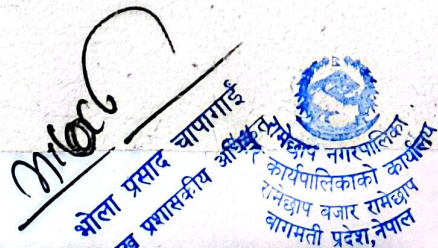 भोला प्रसाद चापागाई
प्रशासकीय अधिकृत
रामेछाप नगरपालिका
कार्यपालिकाको कार्यालय
रामेछाप बजार रामेछाप
बागमती प्रदेश, नेपाल